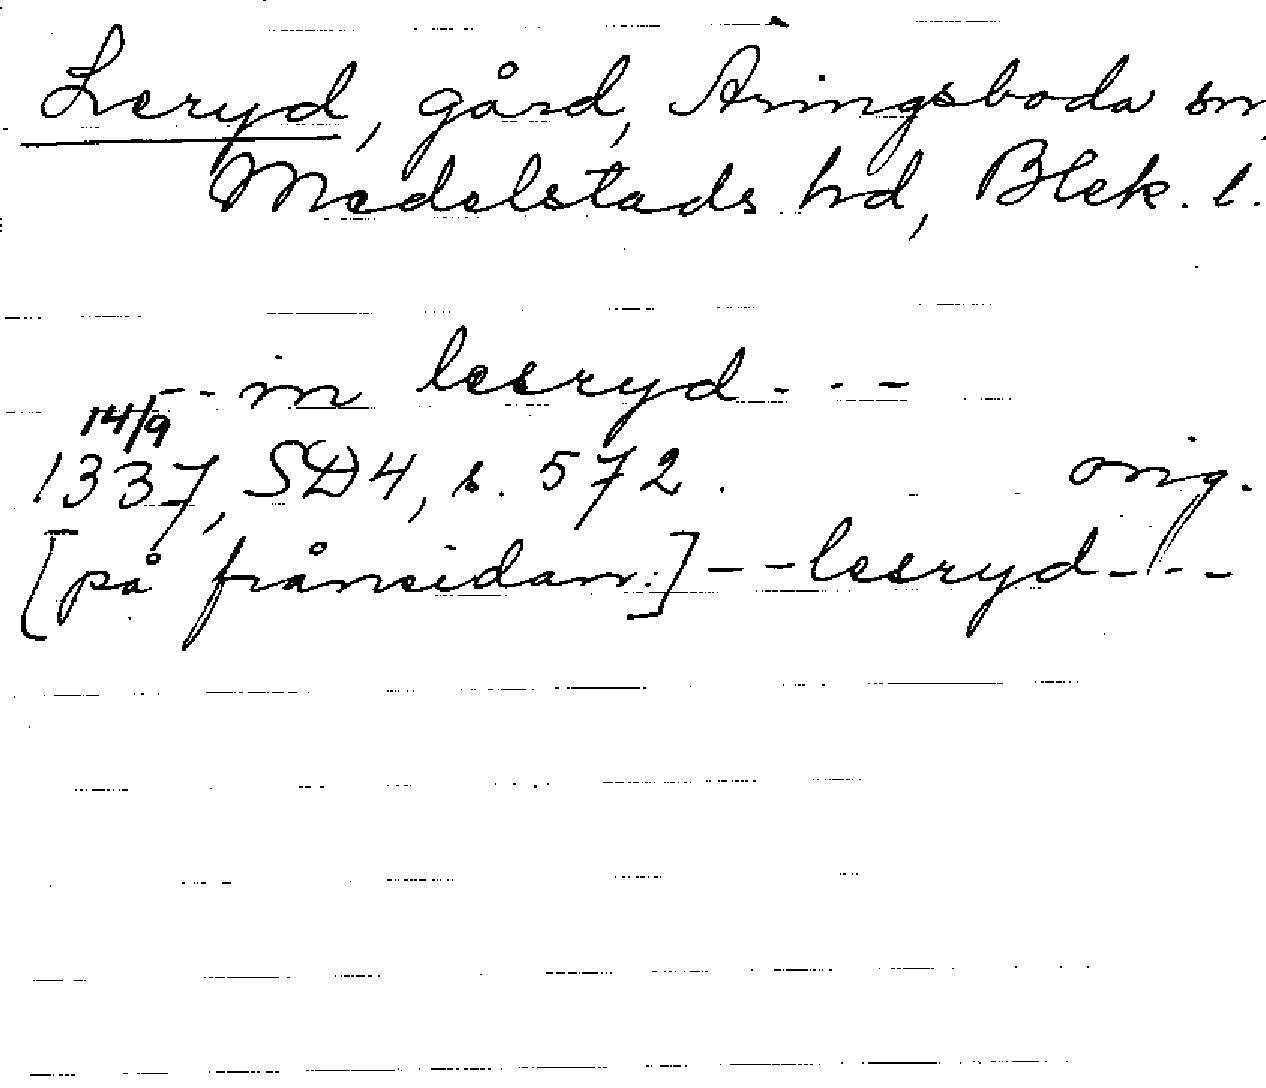 Leryd, gård, Åringsboda sn,
Medelstads hd, Blek. l.
- - in leeryd - - -
14/9
1337, SD4, s. 572. orig.
[på frånsidan:] - - leeryd - - -